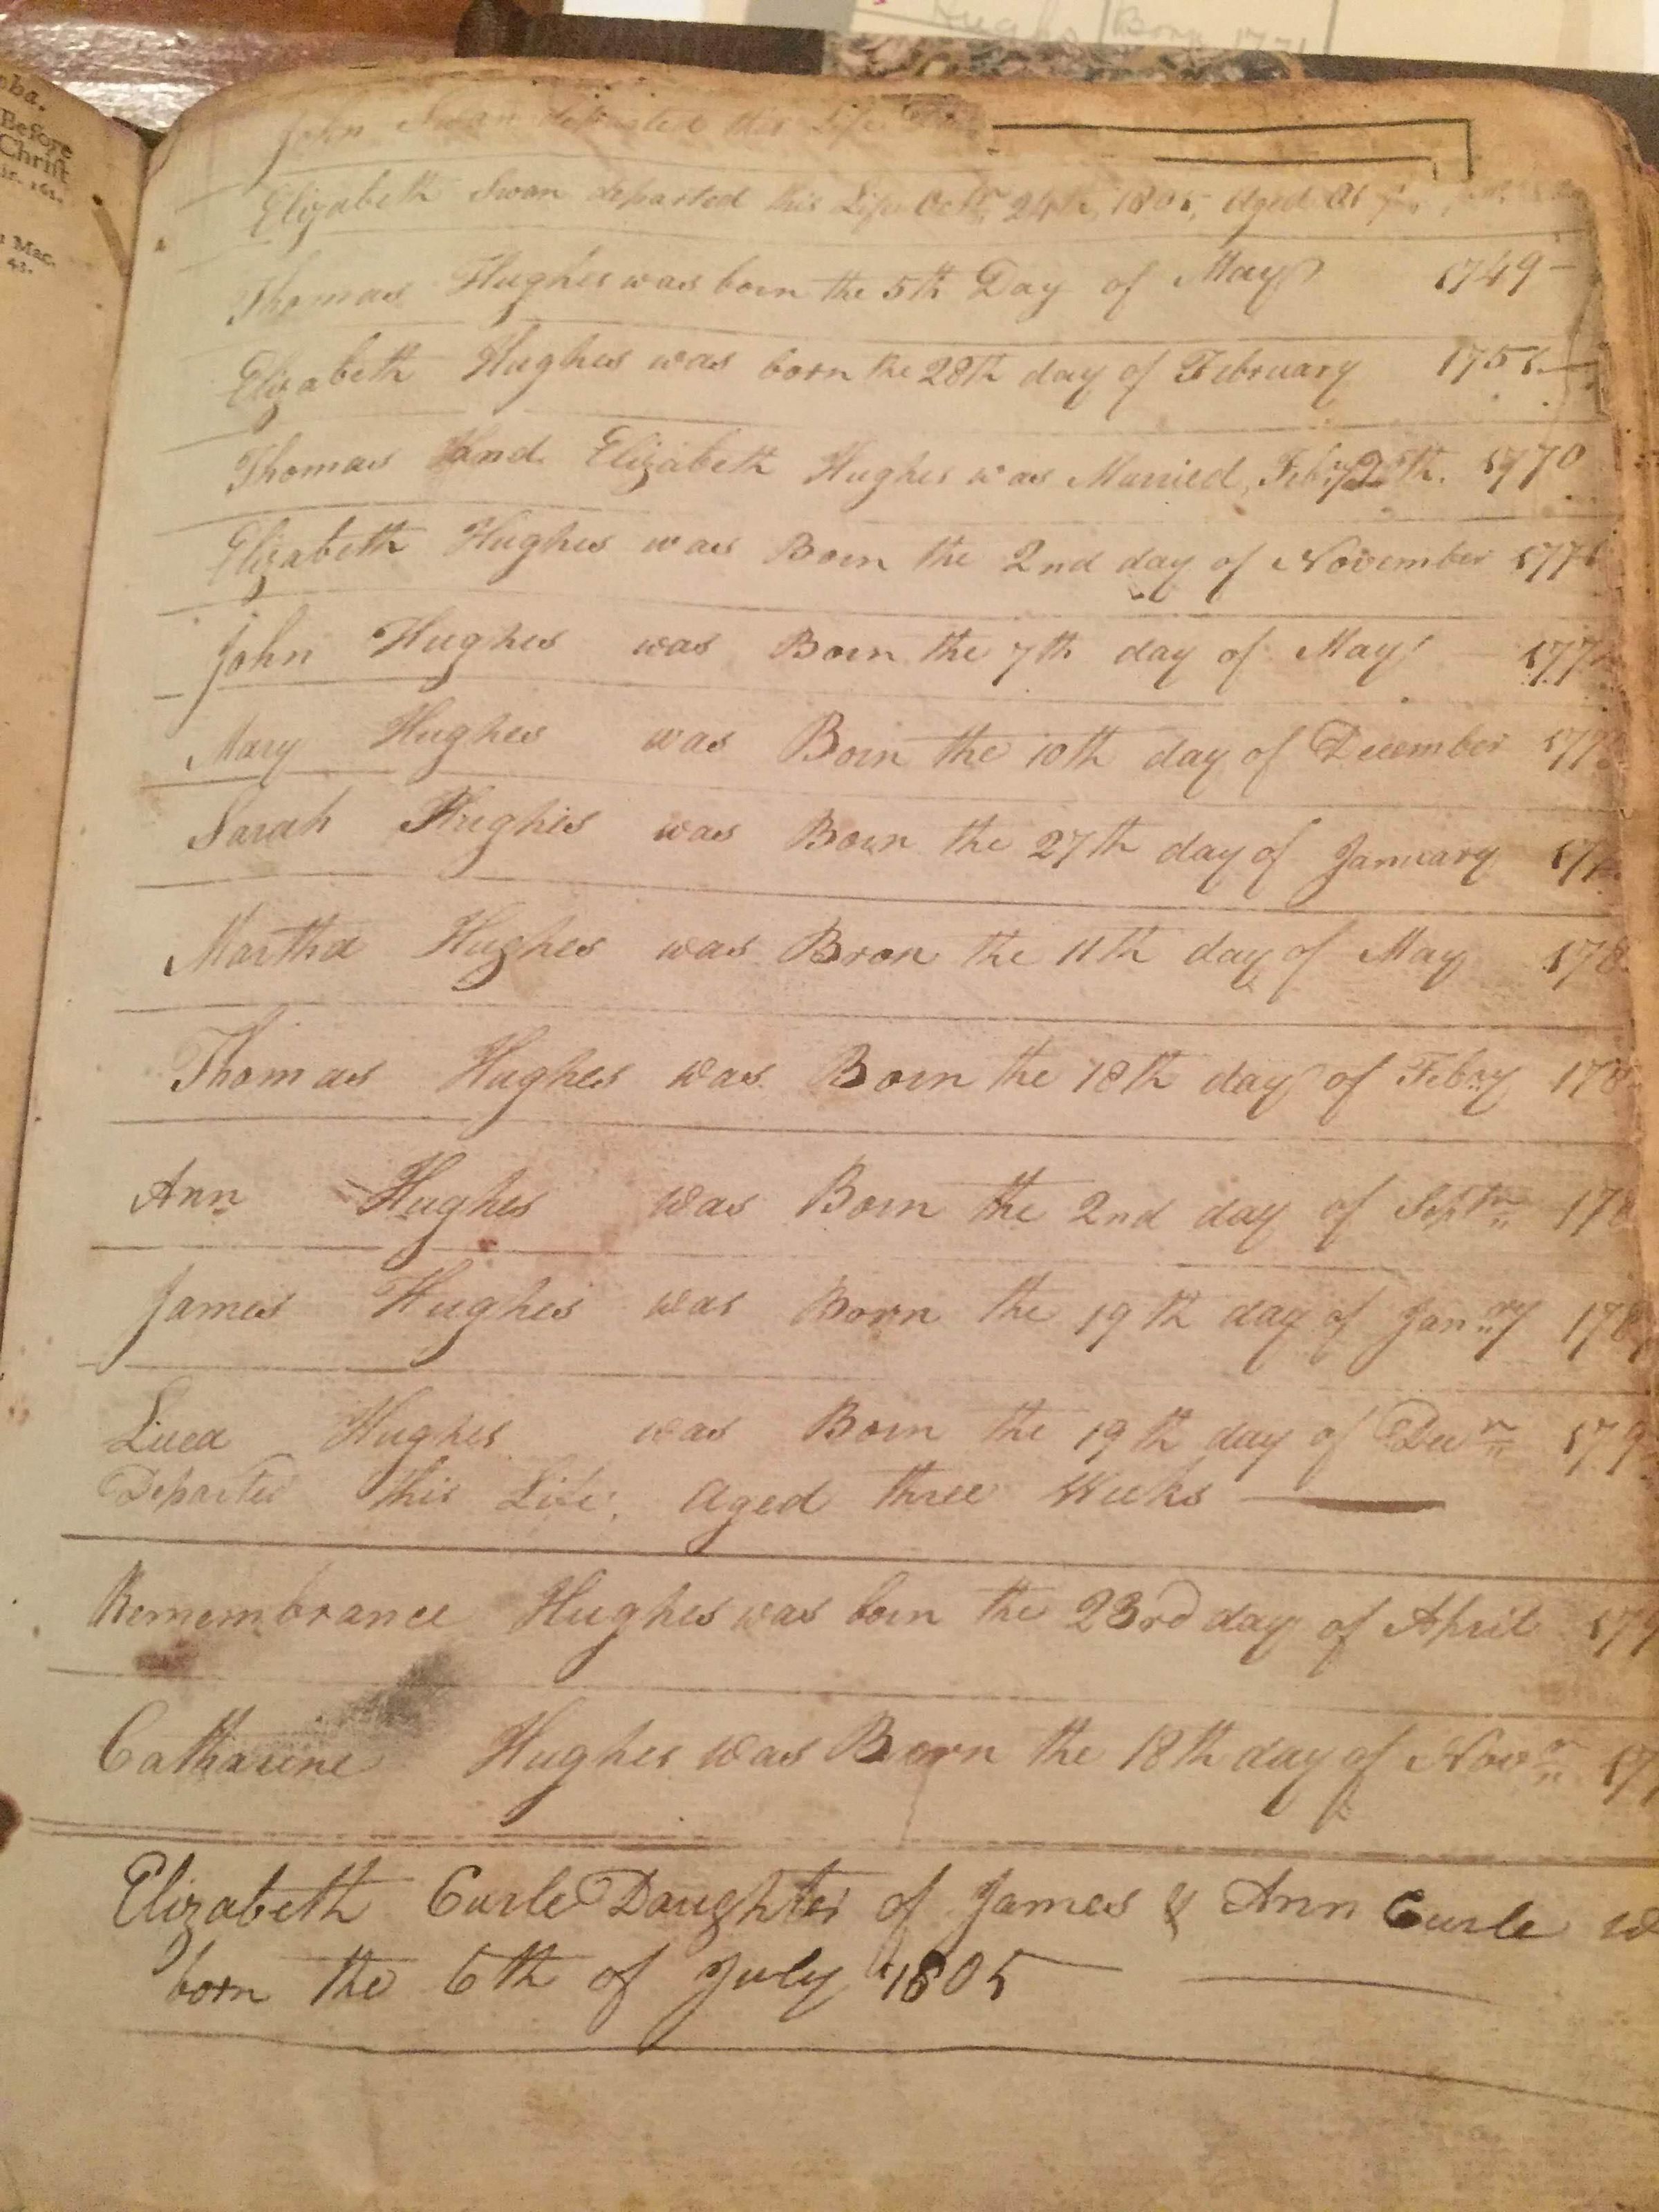 Hughs Born 1771
oba.
Before
Christ
cir. 162.
1 Mac.
43.
John Swan departed this Life
Elizabeth Swan departed this Life Octr 24th, 1805, Aged 81
Thomas Hughes was born the 5th Day of May 1749
Elizabeth Hughes was born the 28th day of February 1751
Thomas And Elizabeth Hughes was Married, Febry 1770
Elizabeth Hughes was Born the 2nd day of November 177
John Hughes was Born the 7th day of May 177
Mary Hughes was Born the 10th day of December 177
Sarah Hughes was Born the 27th day of January 17
Martha Hughes was Bron the 11th day of May 178
Thomas Hughes was Born the 18th day of Febry 178
Ann Hughes was Born the 2nd day of Septr 178
James Hughes was Born the 19th day of Janry 178
Lucea Hughes was Born the 19th day of Decr 179
Departed this Life, Aged three Weeks
Remembrance Hughes was born the 23rd day of April 179
Catharine Hughes was Born the 18th day of Novr 17
Elizabeth Curle Daughter of James & Ann Curle w
born the 6th of July 1805